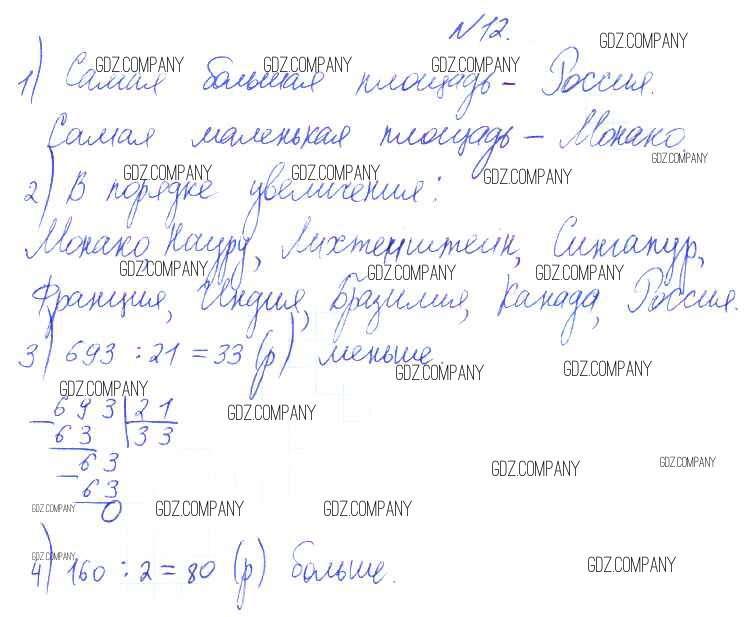 N12.
GDZ.COMPANY
GDZ.COMPANY GDZ.COMPANY GDZ.COMPANY
1) Самая большая площадь – Россия.
Самая маленькая площадь – Монако.
GDZ.COMPANY
GDZ.COMPANY GDZ.COMPANY GDZ.COMPANY
2) В порядке увеличения:
Монако, Науру, Лихтенштейн, Сингапур,
GDZ.COMPANY GDZ.COMPANY GDZ.COMPANY
Франция, Индия, Бразилия, Канада, Россия.
3) 693 : 21 = 33 (р) меньше.
GDZ.COMPANY GDZ.COMPANY
GDZ.COMPANY GDZ.COMPANY
693 | 21
– 63 | 33
63
– 63
0
GDZ.COMPANY GDZ.COMPANY
GDZ.COMPANY GDZ.COMPANY GDZ.COMPANY
GDZ.COMPANY GDZ.COMPANY
4) 160 : 2 = 80 (р) больше.